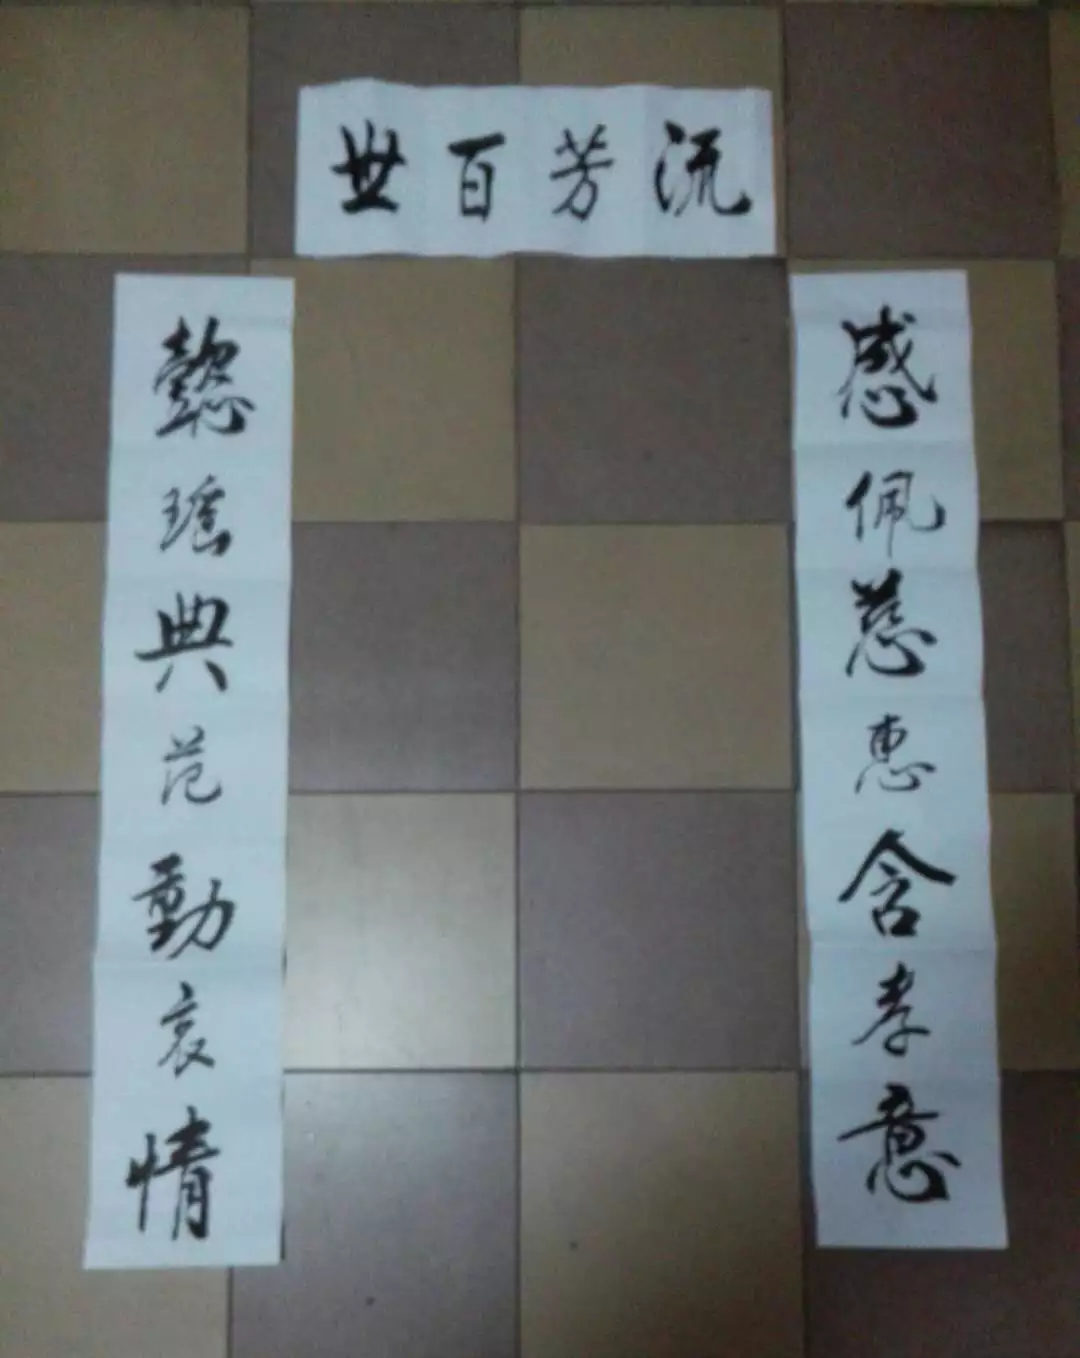 流芳百世
感佩慈惠含孝意
懿瑶典范動哀情